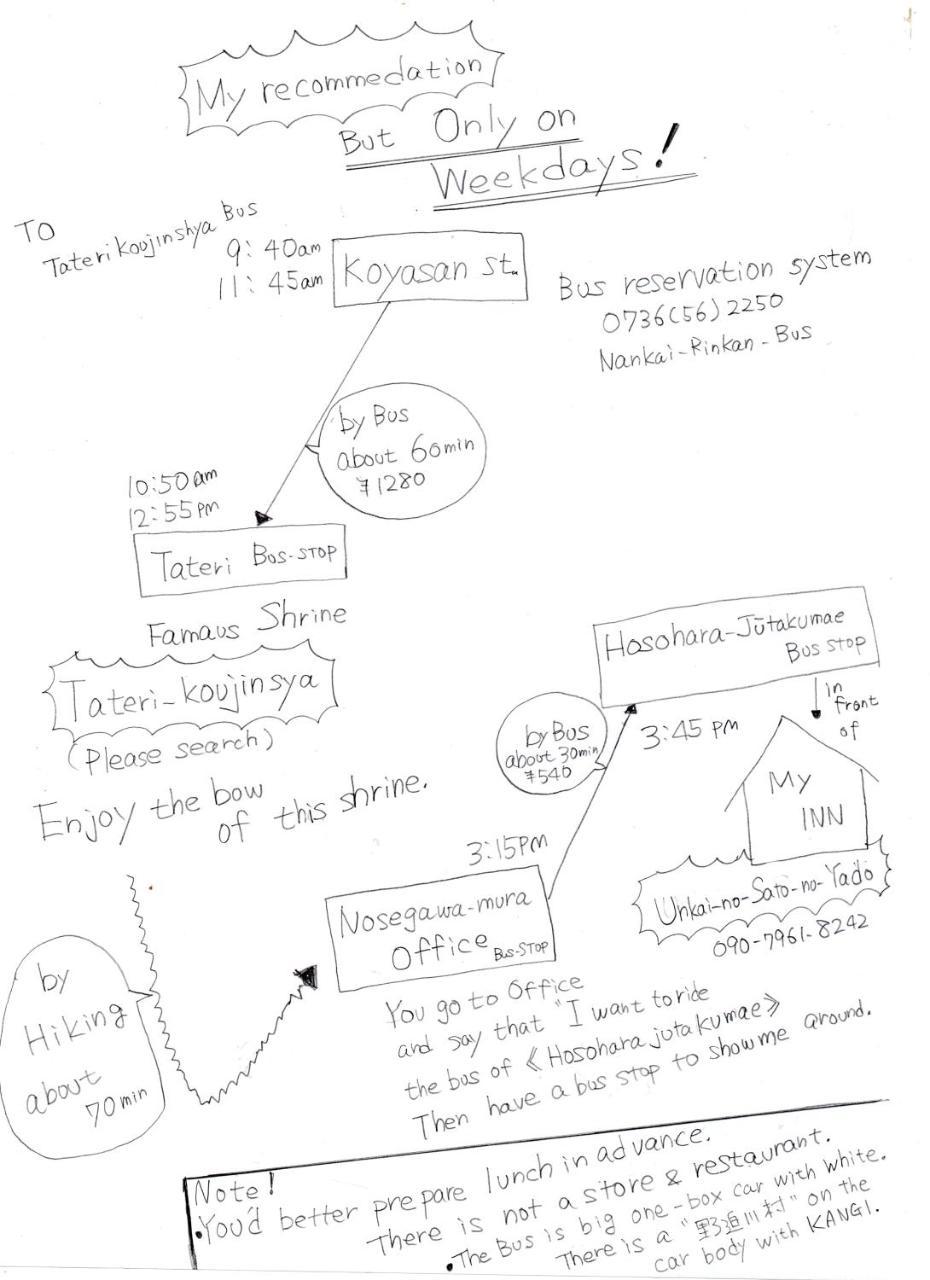 My recommedation
But Only on
Weekdays!
TO
Taterikoujinshya Bus
9:40am
11:45am
Koyasan st.
Bus reservation system
0736(56)2250
Nankai-Rinkan-Bus
by Bus
about 60min
¥1280
10:50am
12:55PM
Tateri Bus-STOP
Famaus Shrine
Tateri-koujinsya
(Please search)
Enjoy the bow
of this shrine.
by
Hiking
about
70min
Nosegawa-mura
Office Bus-STOP
3:15PM
by Bus
about 30min
¥540
Hosohara-Jūtakumae
Bus stop
3:45 PM
in
front
of
My
INN
Unkai-no-Sato-no-Yado
090-7961-8242
You go to Office
and say that "I want to ride
the bus of 《Hosohara jutakumae》
Then have a bus stop to show me around.
Note!
•You'd better prepare lunch in advance.
There is not a store & restaurant.
•The Bus is big one-box car with white.
There is a "野迫川村" on the
car body with KANGI.